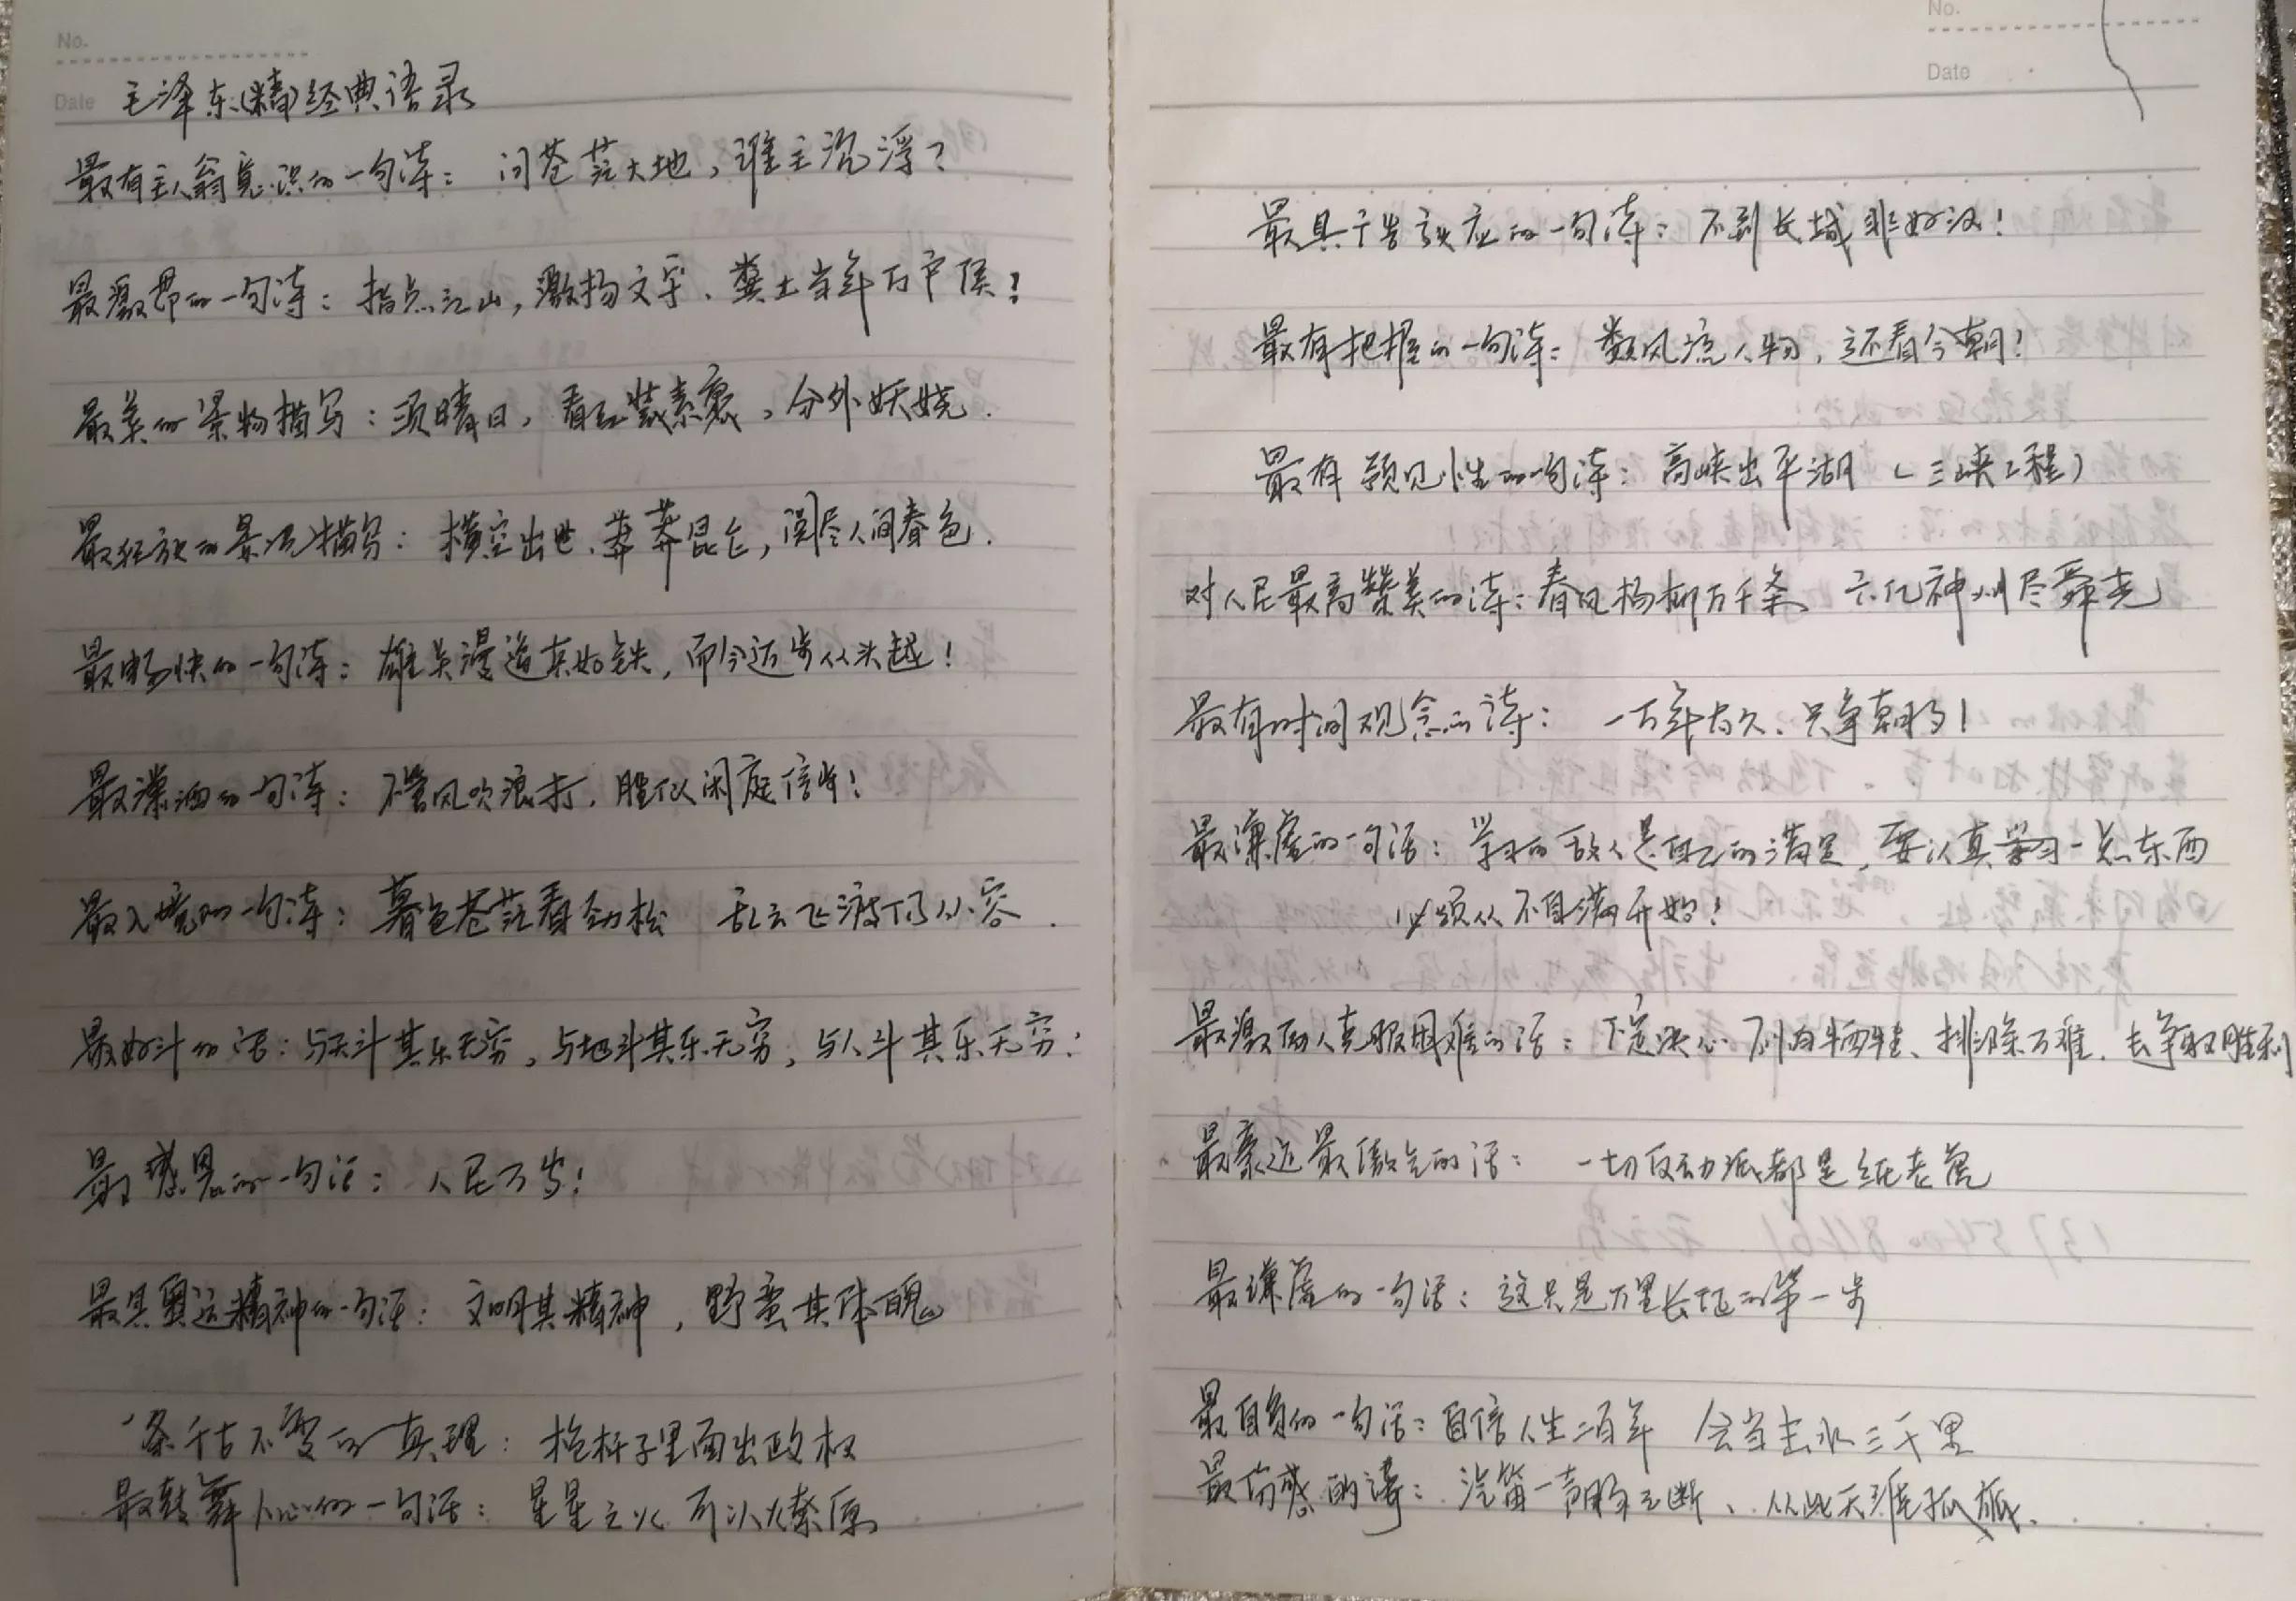 No.
Date 毛泽东(精)经典语录
最有主人翁意识的一句诗：问苍茫大地，谁主沉浮？
最激昂的一句诗：指点江山，激扬文字、粪土当年万户侯！
最美的景物描写：须晴日，看红装素裹，分外妖娆.
最狂放的景况描写：横空出世、莽莽昆仑，阅尽人间春色.
最畅快的一句诗：雄关漫道真如铁，而今迈步从头越！
最潇洒的一句诗：不管风吹浪打，胜似闲庭信步！
最入境的一句诗：暮色苍茫看劲松 乱云飞渡仍从容.
最好斗的话：与天斗其乐无穷，与地斗其乐无穷，与人斗其乐无穷！
最感恩的一句话：人民万岁！
最具奥运精神的一句话：文明其精神，野蛮其体魄
一条千古不变的真理：枪杆子里面出政权
最鼓舞人心的一句话：星星之火 可以燎原
No.
Date
最具广告效应的一句诗：不到长城非好汉！
最有把握的一句诗：数风流人物，还看今朝！
最有预见性的一句诗：高峡出平湖（三峡工程）
对人民最高赞美的诗：春风杨柳万千条 六亿神州尽舜尧
最有时间观念的诗：一万年太久、只争朝夕！
最谦虚的一句话：学习的敌人是自己的满足，要认真学习一点东西
必须从不自满开始！
最激励人克服困难的话：下定决心 不怕牺牲、排除万难、去争取胜利
最豪迈最傲气的话：一切反动派都是纸老虎
最谦虚的一句话：这只是万里长征的第一步
最自负的一句话：自信人生二百年 会当击水三千里
最伤感的诗：汽笛一声肠已断、从此天涯孤旅.